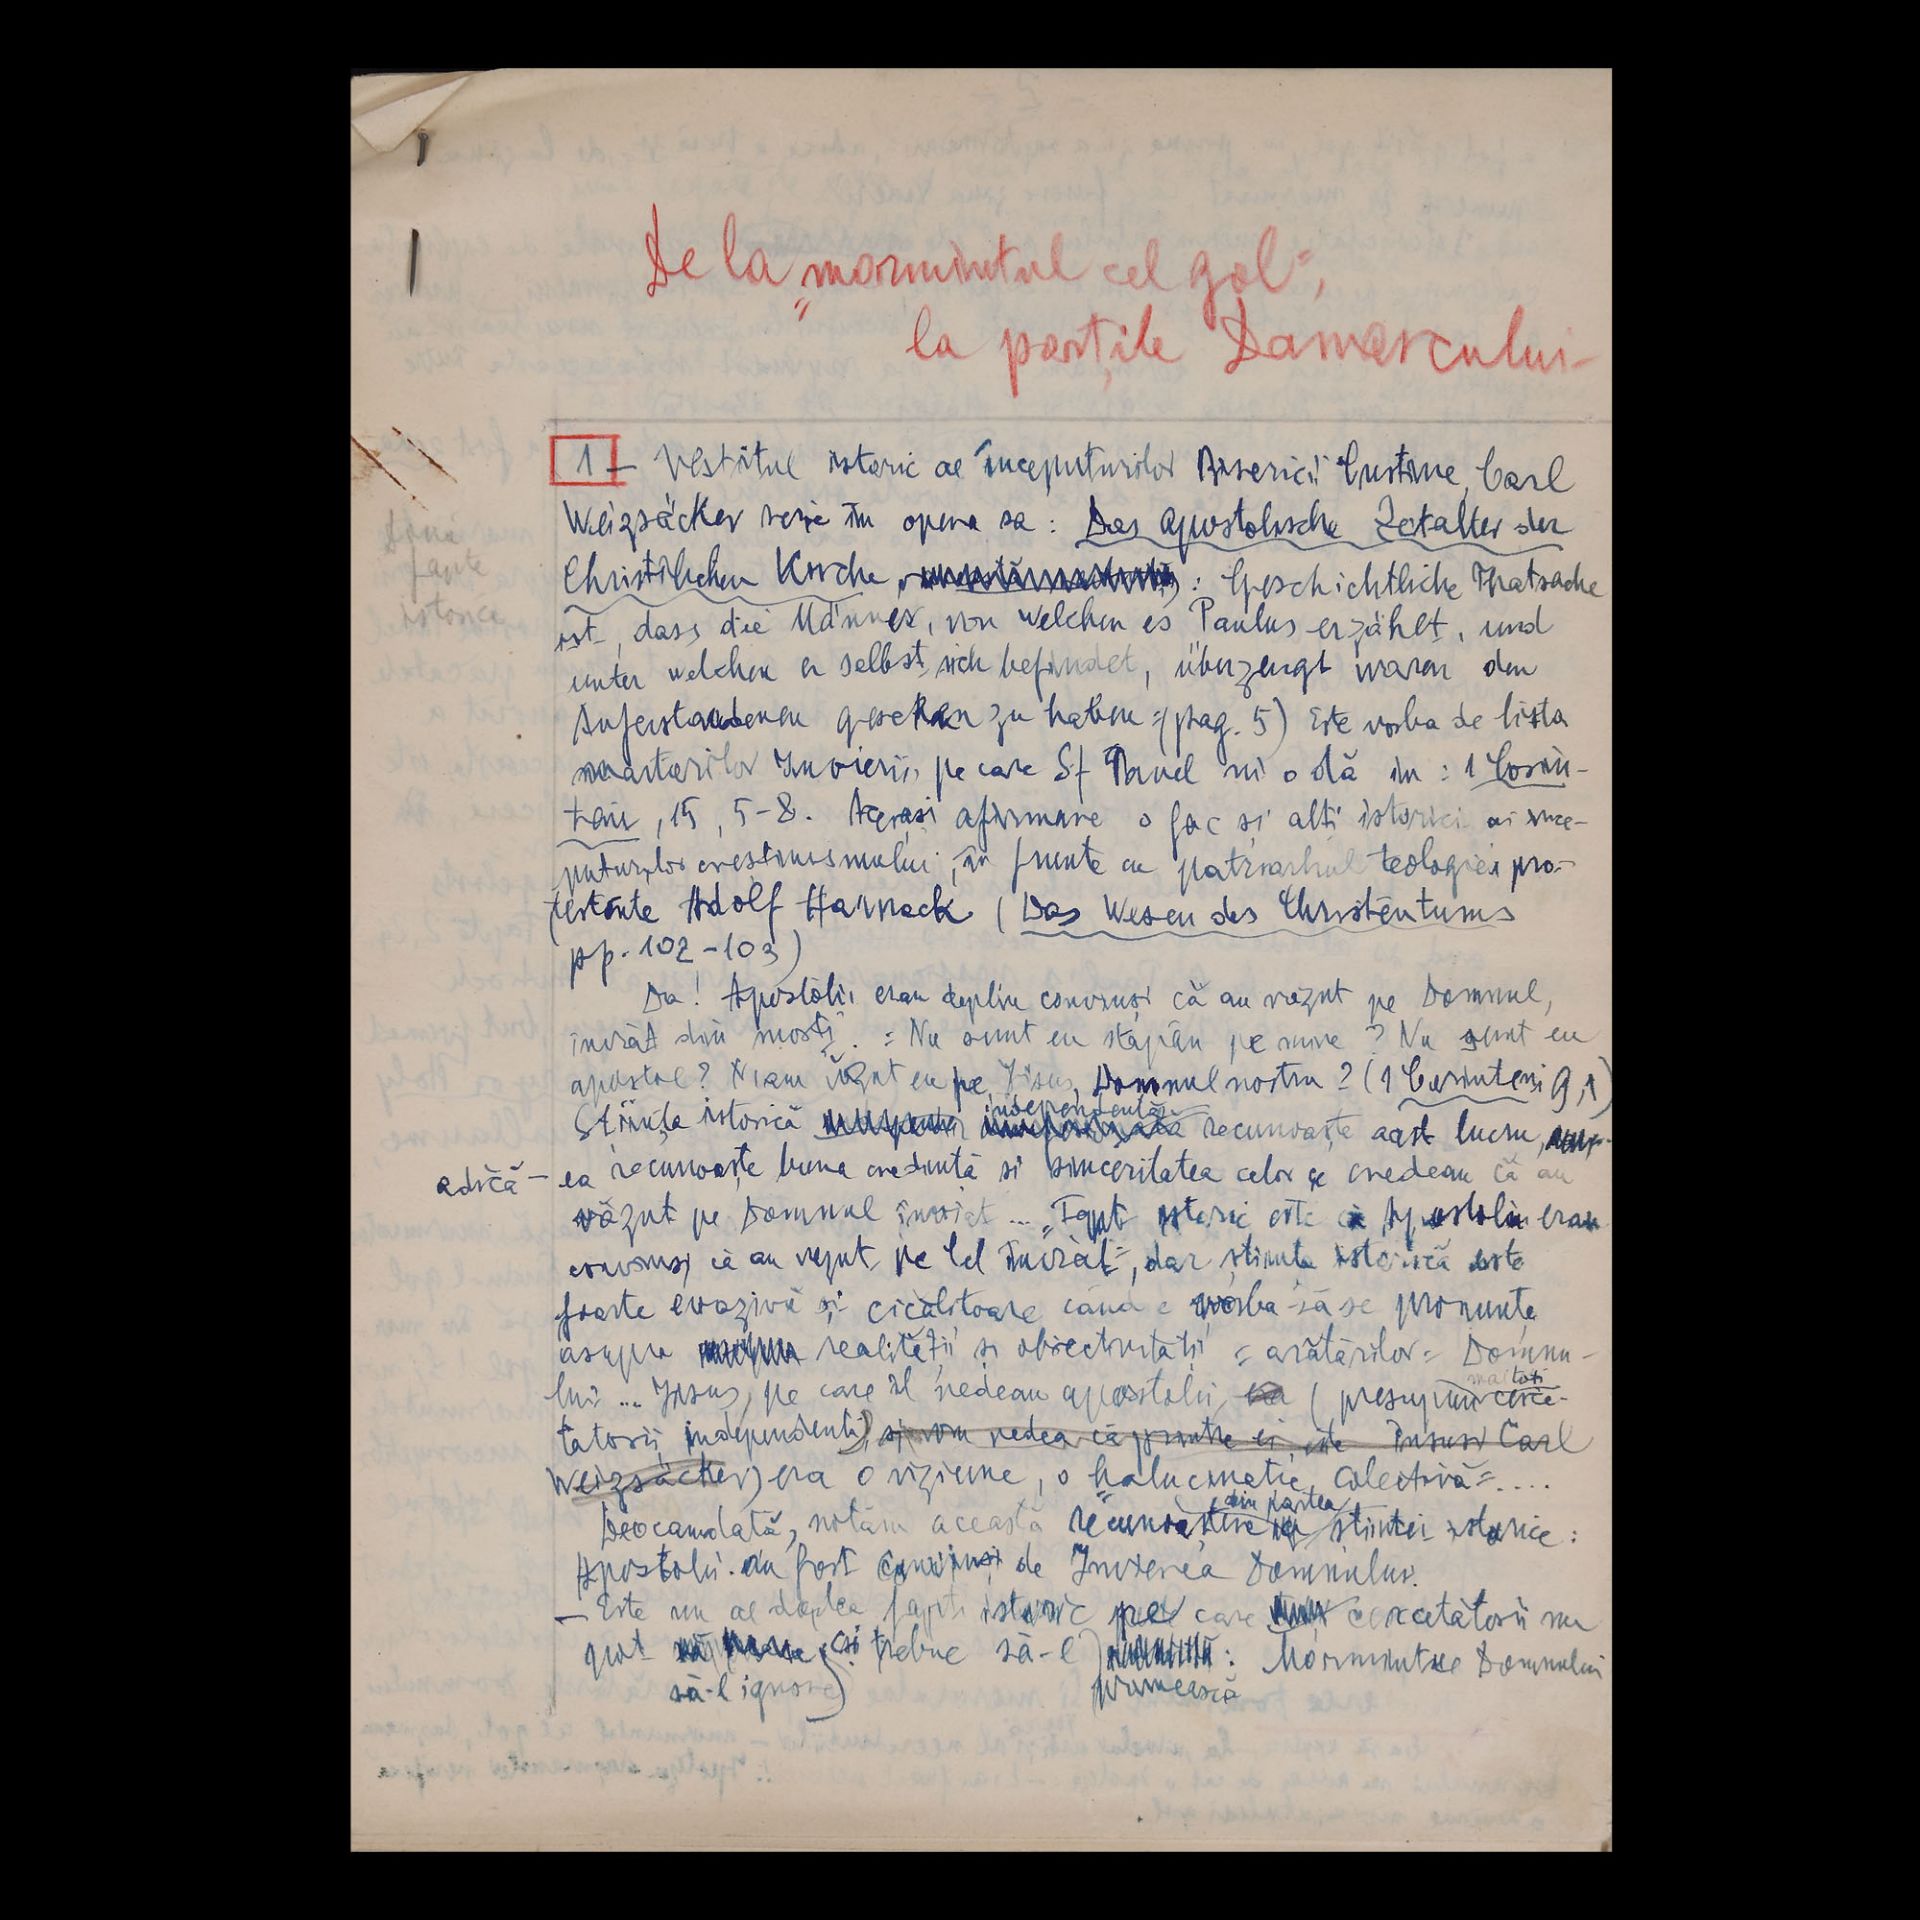 De la „mormintul cel gol",
la porțile Damascului –
1 – Vestitul istoric al începuturilor Bisericii Creștine, Carl
Weizsäcker scrie în opera sa : Das apostolische Zeitalter der
Christlichen Kirche : Geschichtliche Thatsache
ist, dass die Männer, von welchen es Paulus erzählt, und
unter welchen er selbst sich befindet, überzeugt waren den
Auferstandenen gesehen zu haben" (pag. 5) Este vorba de lista
martorilor Invierii, pe care Sf Pavel ni o dă in : 1 Corin-
teni, 15, 5-8. Aceiași afirmare o fac si alti istorici ai ince-
puturilor crestinismului, în frunte cu patriarhul teologiei pro-
testante Adolf Harnack (Das Wesen des Christentums
pp. 102-103)
Da! Apostolii erau deplin convinși că au văzut pe Domnul,
înviat din morți. „Nu sunt eu stăpân pe mine ? Nu sunt eu
apostol ? N'am văzut eu pe Iisus, Domnul nostru ? (1 Corinteni 9,1)
independentă
Stiința istorică recunoaște acest lucru,
adică – ea recunoaște buna credință si sinceritatea celor ce credeau că au
văzut pe Domnul înviat ... „Fapt istoric este că Apostolii erau
convinși că au vezut pe Cel Inviat", dar știința istorică este
foarte evazivă și cicălitoare când e vorba să se pronunțe
asupra realității și obiectivității „arătărilor" Domnu-
lui ... Iisus, pe care îl vedeau apostolii, (presupun
mai toti
cerce-
tatorii independenti), si vom vedea că printre ei este însusi Carl
Weizsäcker) era o viziune, o „halucinatie colectivă"....
din partea
Deocamdată, notăm această recunoaștere științei istorice :
Apostolii au fost convinși de Invierea Domnului.
– Este un al doilea fapt istoric pe care cercetătorii nu
pot și trebue să-l : Mormintul Domnului
să-l ignore) primească
două
fapte
istorice